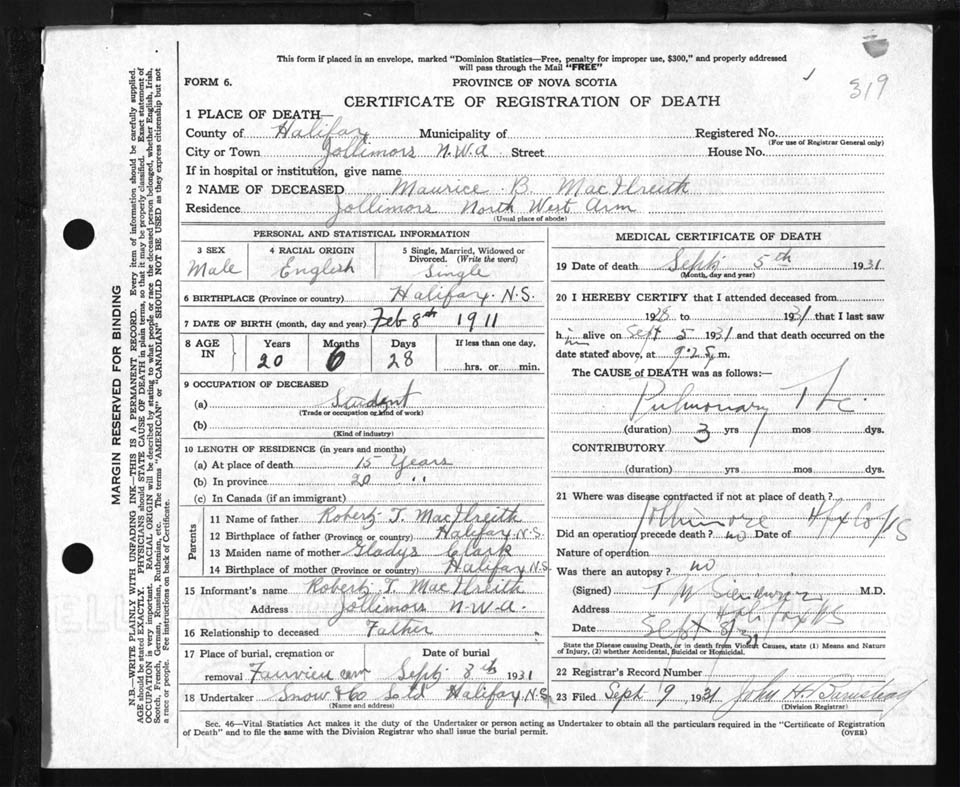 This form if placed in an envelope, marked "Dominion Statistics—Free, penalty for improper use, $300," and properly addressed
will pass through the Mail "FREE"
FORM 6.
PROVINCE OF NOVA SCOTIA
319
CERTIFICATE OF REGISTRATION OF DEATH
1 PLACE OF DEATH—
County of Halifax Municipality of Registered No.
(For use of Registrar General only)
City or Town Jollimors N.W.A Street House No.
If in hospital or institution, give name
2 NAME OF DECEASED Maurice B. MacIlreith
Residence Jollimors North West Arm
(Usual place of abode)
PERSONAL AND STATISTICAL INFORMATION
3 SEX
Male
4 RACIAL ORIGIN
English
5 Single, Married, Widowed or
Divorced. (Write the word)
Single
6 BIRTHPLACE (Province or country) Halifax N.S.
7 DATE OF BIRTH (month, day and year) Feb 8th 1911
8 AGE IN
Years Months Days If less than one day,
20 6 28 hrs. or min.
9 OCCUPATION OF DECEASED
(a) Student
(Trade or occupation or kind of work)
(b)
(Kind of industry)
10 LENGTH OF RESIDENCE (in years and months)
(a) At place of death 15 Years
(b) In province 20 "
(c) In Canada (if an immigrant)
Parents
11 Name of father Robert T. MacIlreith
12 Birthplace of father (Province or country) Halifax N.S.
13 Maiden name of mother Gladys Clark
14 Birthplace of mother (Province or country) Halifax N.S.
15 Informant's name Robert T. MacIlreith
Address Jollimors N.W.A.
16 Relationship to deceased Father
17 Place of burial, cremation or removal Fairview cem Date of burial Sept 8th 1931
18 Undertaker Snow & Co Ltd Halifax N.S.
(Name and address)
MEDICAL CERTIFICATE OF DEATH
19 Date of death Sept 5th 1931
(Month, day and year)
20 I HEREBY CERTIFY that I attended deceased from
1928 to 1931 that I last saw
him alive on Sept 5 1931 and that death occurred on the
date stated above, at 9.25 m.
The CAUSE of DEATH was as follows:
Pulmonary Tbc.
(duration) 3 yrs mos dys.
CONTRIBUTORY
(duration) yrs. mos. dys.
21 Where was disease contracted if not at place of death?
Jollimore Hfx Co NS
Did an operation precede death? no Date of
Nature of operation
Was there an autopsy? no
(Signed) M.D.
Address Halifax NS
Date Sept 8/31
State the Disease causing Death, or in death from Violent Causes, state (1) Means and Nature
of Injury, (2) whether Accidental, Suicidal or Homicidal.
22 Registrar's Record Number
23 Filed Sept 9, 1931 John H. Barnstead
(Division Registrar)
Sec. 46—Vital Statistics Act makes it the duty of the Undertaker or person acting as Undertaker to obtain all the particulars required in the "Certificate of Registration
of Death" and to file the same with the Division Registrar who shall issue the burial permit.
(OVER)
MARGIN RESERVED FOR BINDING
N.B.—WRITE PLAINLY WITH UNFADING INK—THIS IS A PERMANENT RECORD. Every item of information should be carefully supplied.
AGE should be stated EXACTLY. PHYSICIANS should STATE CAUSE OF DEATH in plain terms, so that it may be properly classified. Exact statement of
OCCUPATION is very important. RACIAL ORIGIN will be described by stating to what people or race the deceased person belonged, whether English, Irish,
Scotch, French, German, Russian, Ruthenian, etc. The terms "AMERICAN" or "CANADIAN" SHOULD NOT BE USED as they express citizenship but not
a race or people. Fee instructions on back of Certificate.